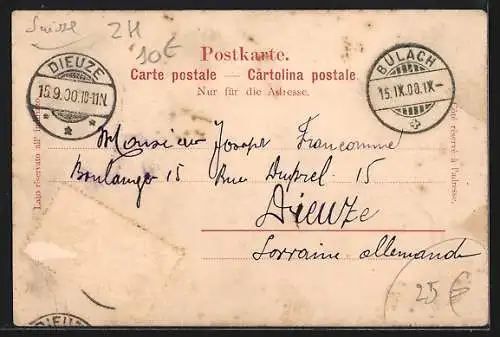 Suisse 2H 10€
DIEUZE
15.9.00.10-11N.
* * *
BÜLACH
15.IX.00.IX-
Postkarte.
Carte postale — Cartolina postale
Nur für die Adresse.
Lato riservato all'indirizzo
Côté réservé à l'adresse.
Monsieur Joseph Francomme
Boulanger 15 Rue 15
Dieuze
Lorraine allemande
25 €
DIEUZE